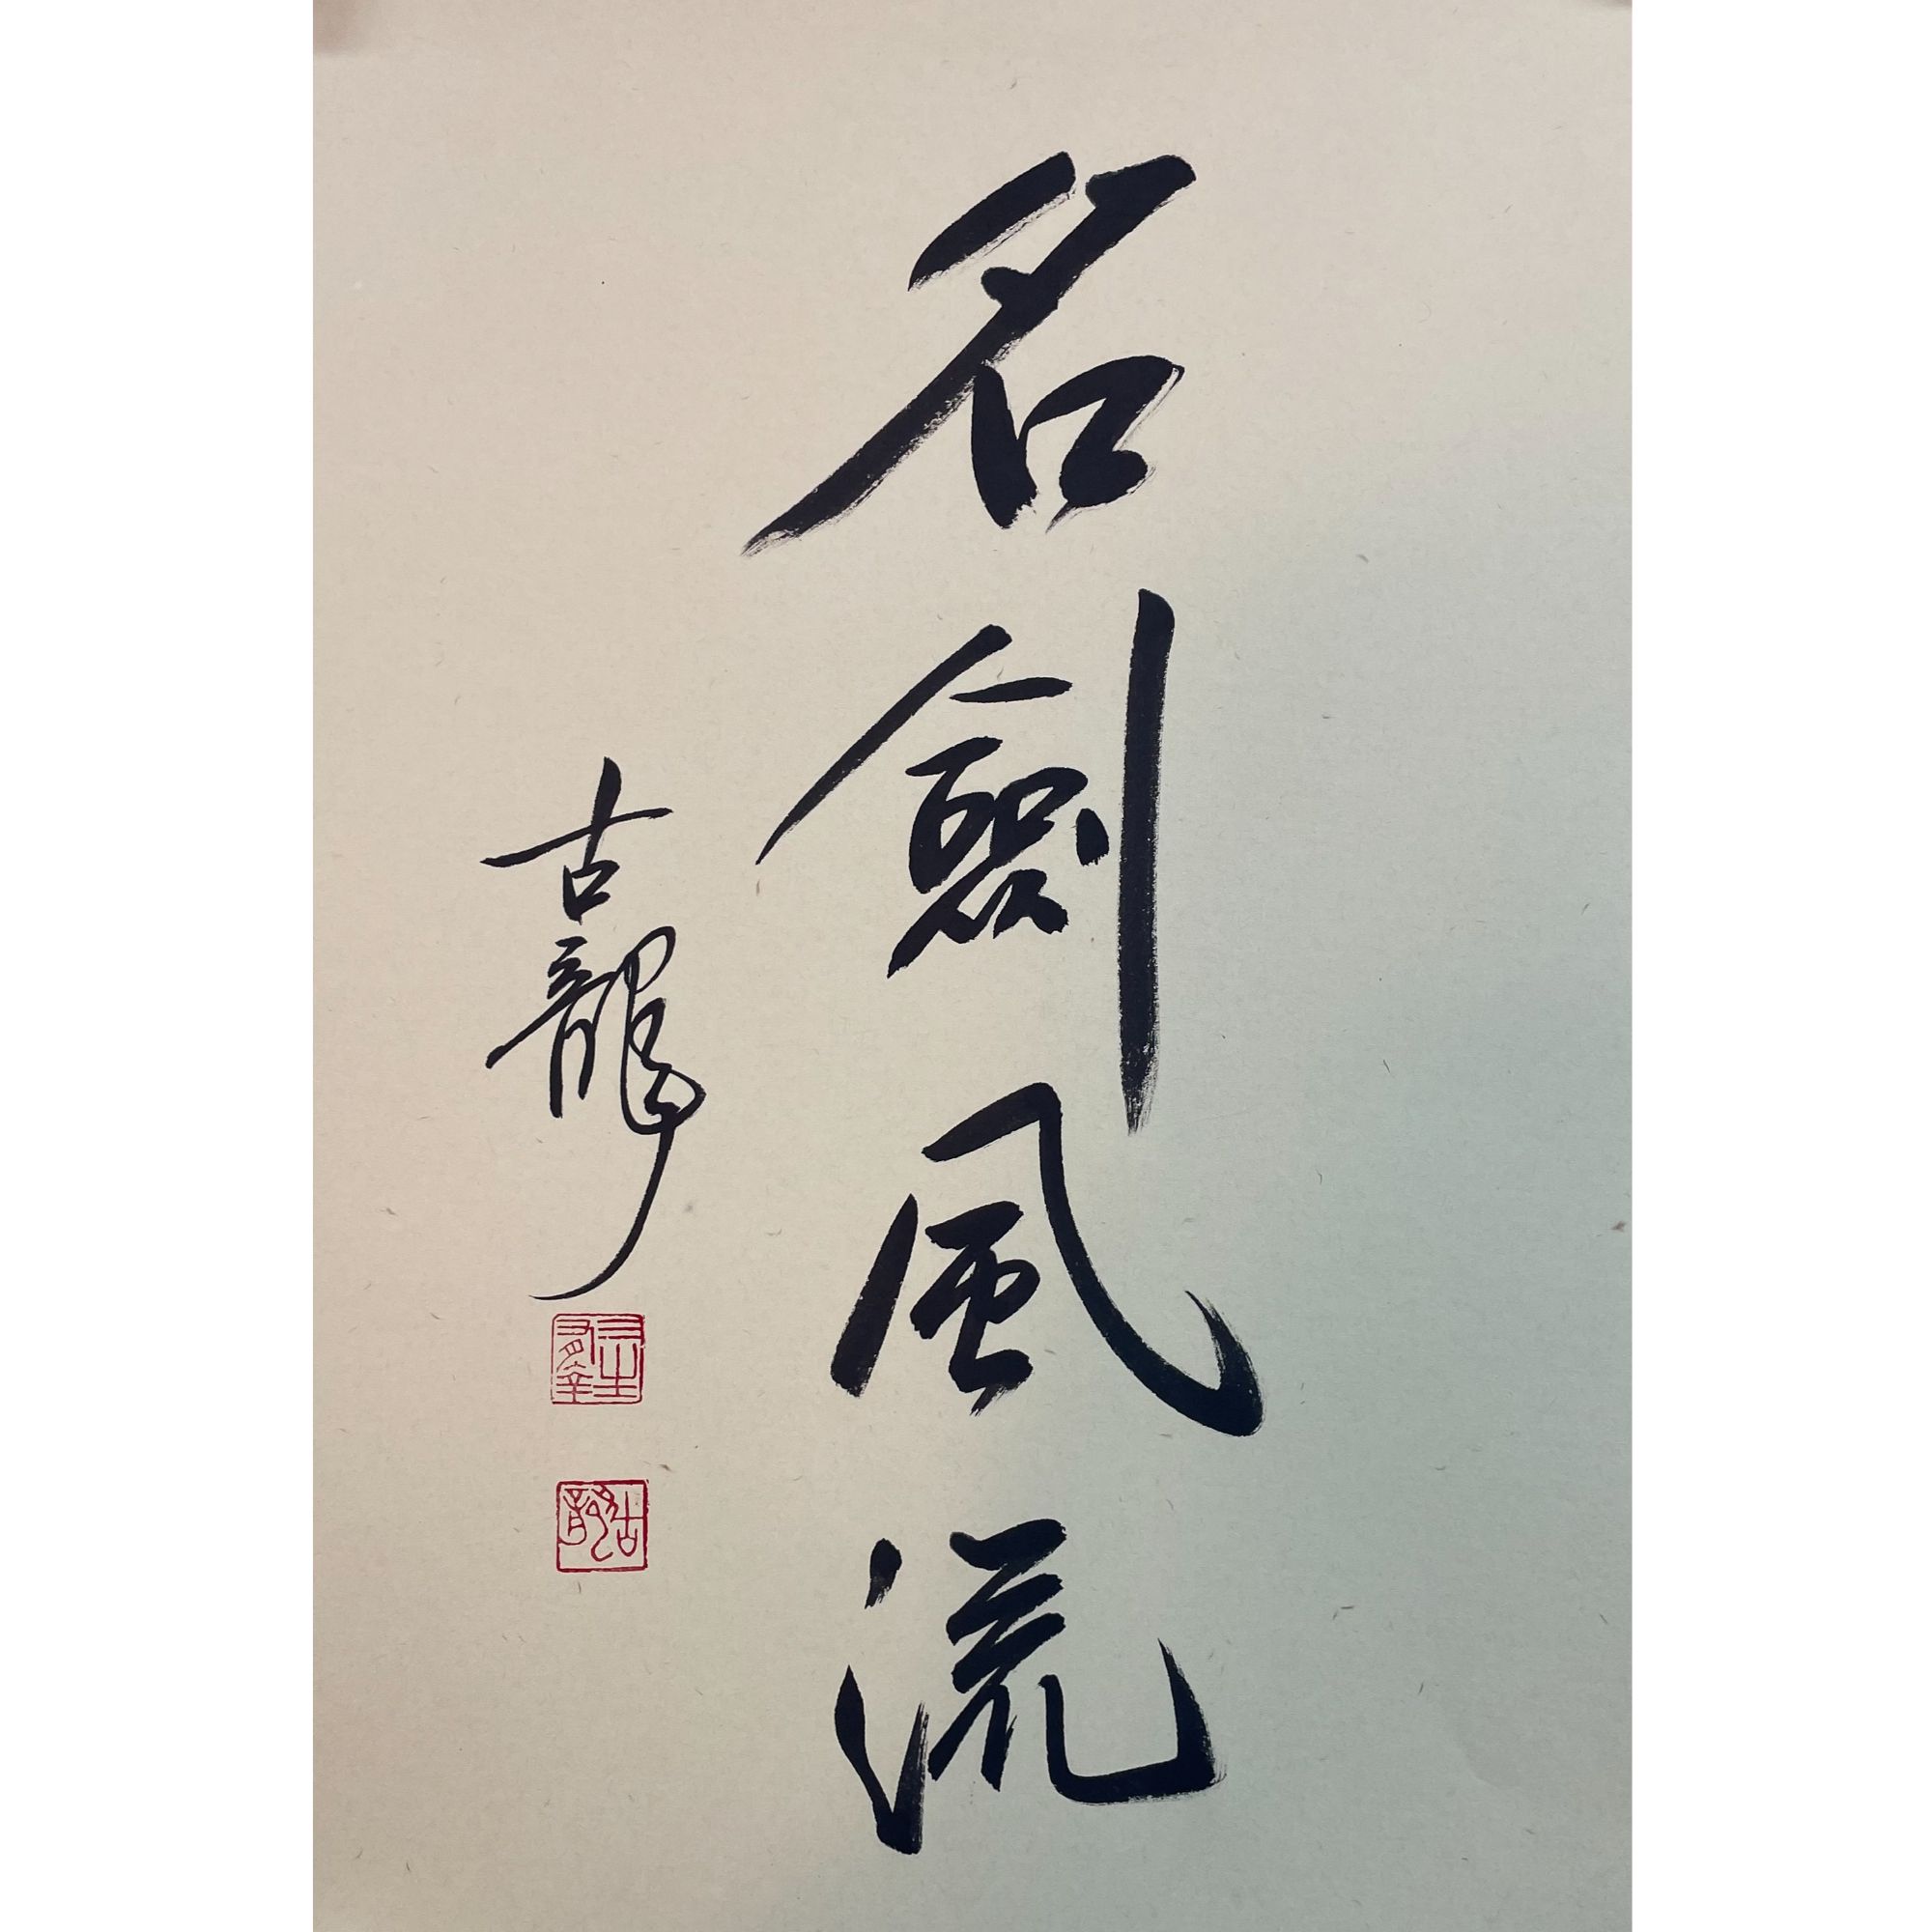 名劍風流
古龍
古龍